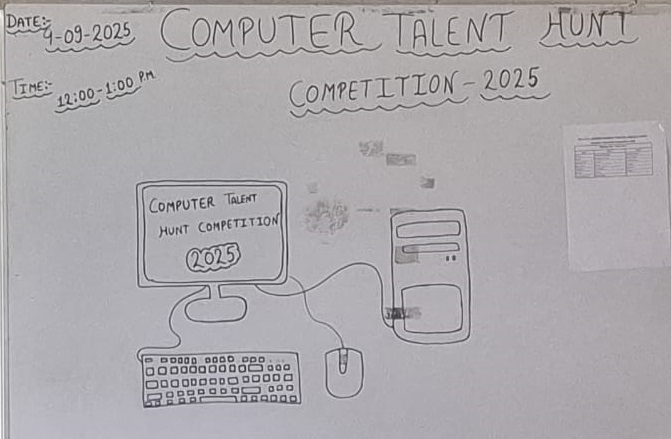 DATE:- 9-09-2025
COMPUTER TALENT HUNT
TIME:- 12:00-1:00 P.M
COMPETITION-2025
COMPUTER TALENT
HUNT COMPETITION
2025